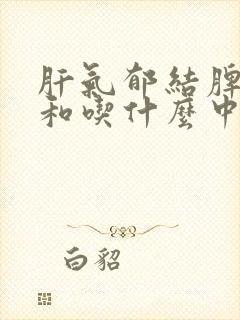 肝氣郁結脾
和喫什麼中
白貂